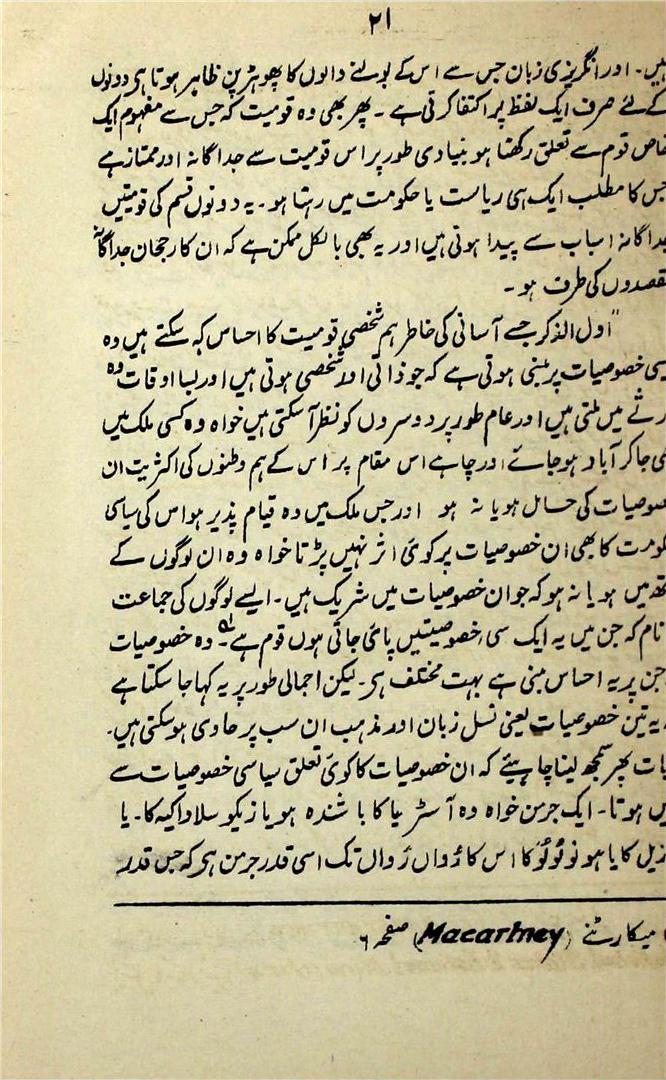 ۲۱
ہیں۔ اور انگریزی زبان جس سے اس کے بولنے والوں کا پھوہڑپن ظاہر ہوتا ہی دونوں
کے لئے صرف ایک لفظ پر اکتفا کرتی ہے۔ پھر بھی وہ قومیت کہ جس سے مفہوم ایک
خاص قوم سے تعلق رکھتا ہو بنیادی طور پر اس قومیت سے جداگانہ اور ممتاز ہے
جس کا مطلب ایک ہی ریاست یا حکومت میں رہتا ہو۔ یہ دونوں قسم کی قومیتیں
جداگانہ اسباب سے پیدا ہوتی ہیں اور یہ بھی بالکل ممکن ہے کہ ان کا رجحان جداگانہ
مقصدوں کی طرف ہو۔
"اول الذکر جسے آسانی کی خاطر ہم شخصی قومیت کا احساس کہہ سکتے ہیں وہ
سی خصوصیات پر مبنی ہوتی ہے کہ جو ذاتی اور شخصی ہوتی ہیں اور بسا اوقات وہ
رثے میں ملتی ہیں اور عام طور پر دوسروں کو نظر آسکتی ہیں خواہ وہ کسی ملک میں
ی جاکر آباد ہو جائے اور چاہے اس مقام پر اس کے ہم وطنوں کی اکثریت ان
صوصیات کی حامل ہو یا نہ ہو اور جس ملک میں وہ قیام پذیر ہو اس کی سیاسی
کومت کا بھی ان خصوصیات پر کوئی اثر نہیں پڑتا خواہ وہ ان لوگوں کے
تھ میں ہو یا نہ ہو کہ جو ان خصوصیات میں شریک ہیں۔ ایسے لوگوں کی جماعت
نام کہ جن میں یہ ایک سی خصوصیتیں پائی جاتی ہوں قوم ہے۔ وہ خصوصیات
جن پر یہ احساس مبنی ہے بہت مختلف ہی۔ لیکن اجمالی طور پر یہ کہا جا سکتا ہے
یہ تین خصوصیات یعنی نسل زبان اور مذہب ان سب پر حاوی ہو سکتی ہیں۔
بات پھر سمجھ لینا چاہیئے کہ ان خصوصیات کا کوئی تعلق سیاسی خصوصیات سے
یں ہوتا۔ ایک جرمن خواہ وہ آسٹریا کا باشندہ ہو یا زیکوسلاواکیہ کا۔ یا
زیل کا یا ہونولولو کا اس کا رُواں رُواں تک اسی قدر جرمن ہی کہ جس قدر
میکارٹنے (Macartney) صفحہ ۶